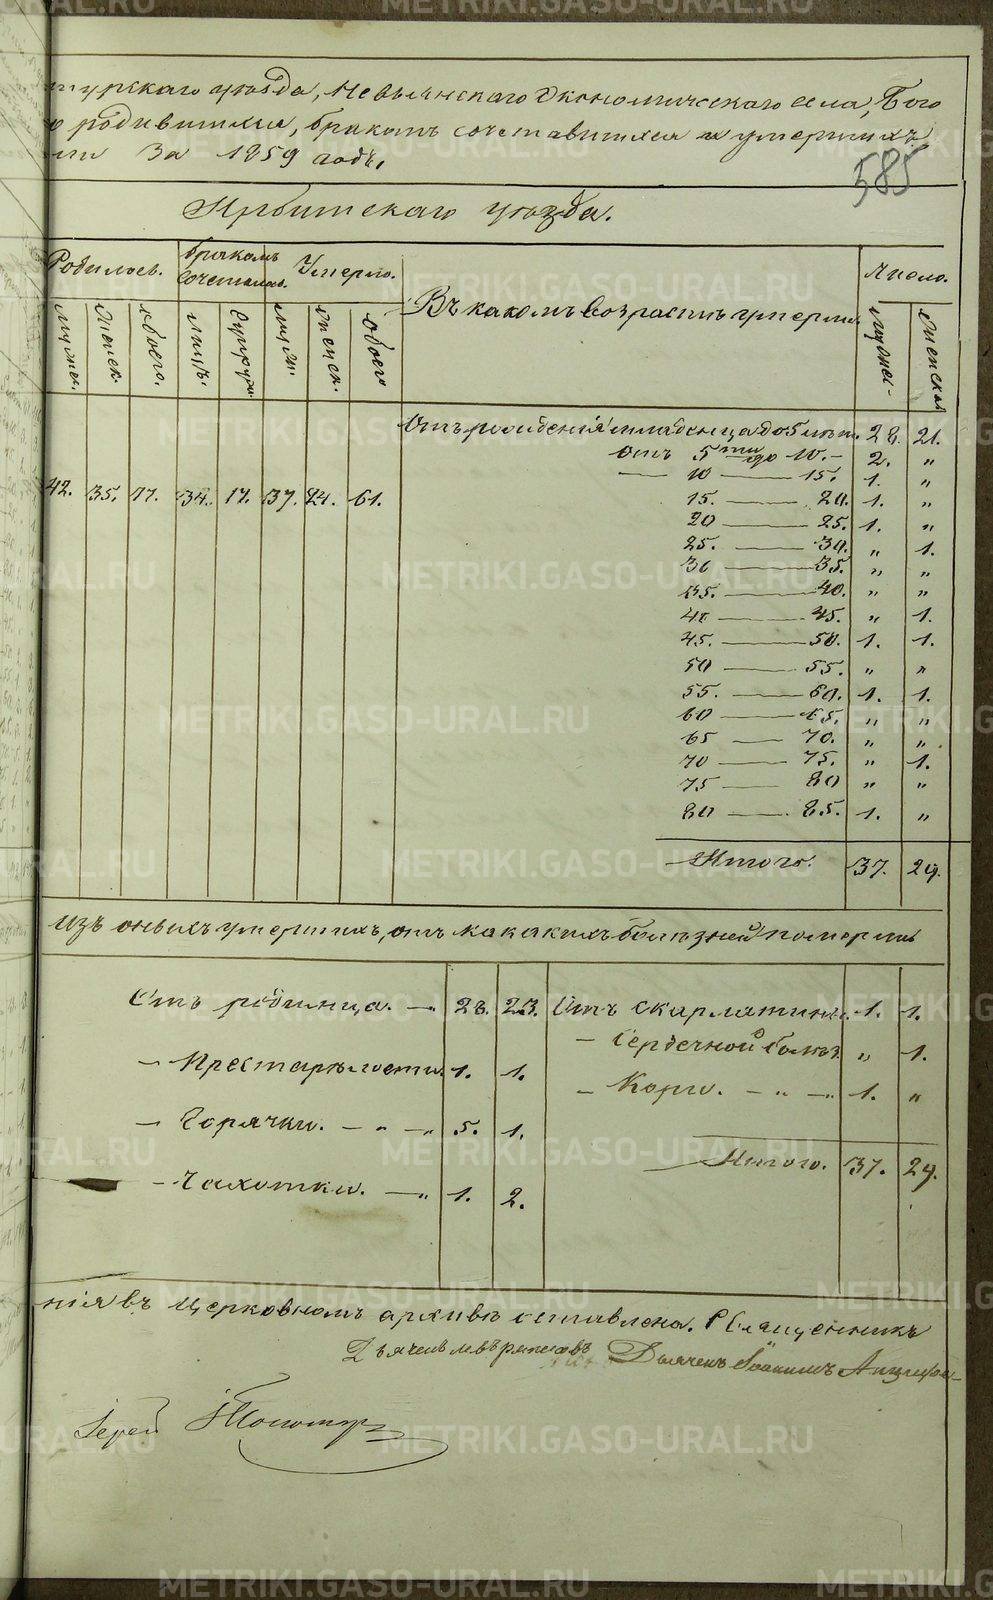 турскаго уѣзда, Невьянскаго Экономическаго села, Бого
родившихся, бракомъ сочетавшихся и умершихъ
за 1859 годъ.
585
Ирбитскаго уѣзда.
Родилось. Бракомъ сочеталось. Умерло. Въ какомъ возрастѣ умерли. Число.
мужес. женск. обоего. лицъ. супруж. муж. женск. обоего мужес. женскаго
Отъ рожденія младенца до 5 лѣтъ. 28. 21.
отъ 5ти до 10. 2. „
10 — 15. 1. „
42. 35. 77. 34. 17. 37. 24. 61.
15. — 20. 1. „
20 — 25. 1. „
25. — 30. „ 1.
30 — 35. „ „
35. — 40. „ „
40 — 45. „ 1.
45. — 50. 1. 1.
50 — 55. „ „
55. — 60. 1. 1.
60 — 65. „ „
65 — 70. „ „
70 — 75. „ 1.
75 — 80 „ „
80 — 85. 1. „
Итого. 37. 24.
изъ оныхъ умершихъ, отъ какихъ болѣзней померли
Отъ родимца. — 28. 23. Отъ скарлатины. 1. 1.
— Сердечной боли. „ 1.
— Престарѣлости. 1. 1.
— Корги. — „ — „ 1. „
— Горячки. — „ — „ 5. 1.
Итого. 37. 24.
— Чахотки. — „ 1. 2.
нія въ церковномъ архивѣ оставлена. Священникъ
Дьячекъ Іоакимъ
Іерей
METRIKI.GASO-URAL.RU